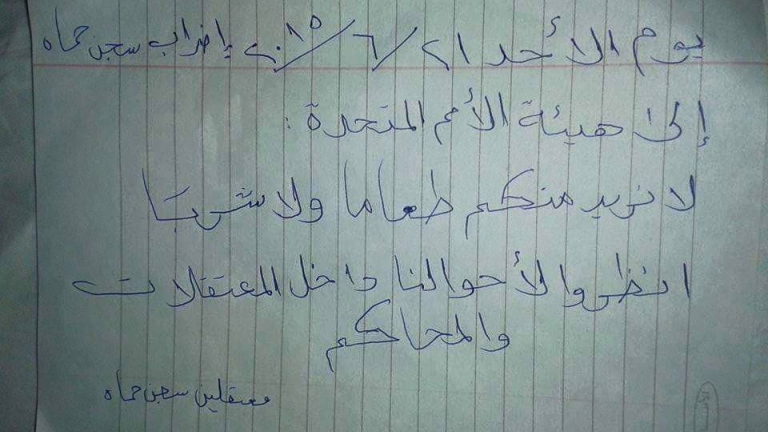 يوم الأحد ٢١/٦/٢٠١٥ إضراب سجن حماه
إلى هيئة الأمم المتحدة :
لا نريد منكم طعاما ولا شربًا
انظروا لأحوالنا داخل المعتقلات
والمحاكم
معتقلين سجن حماه